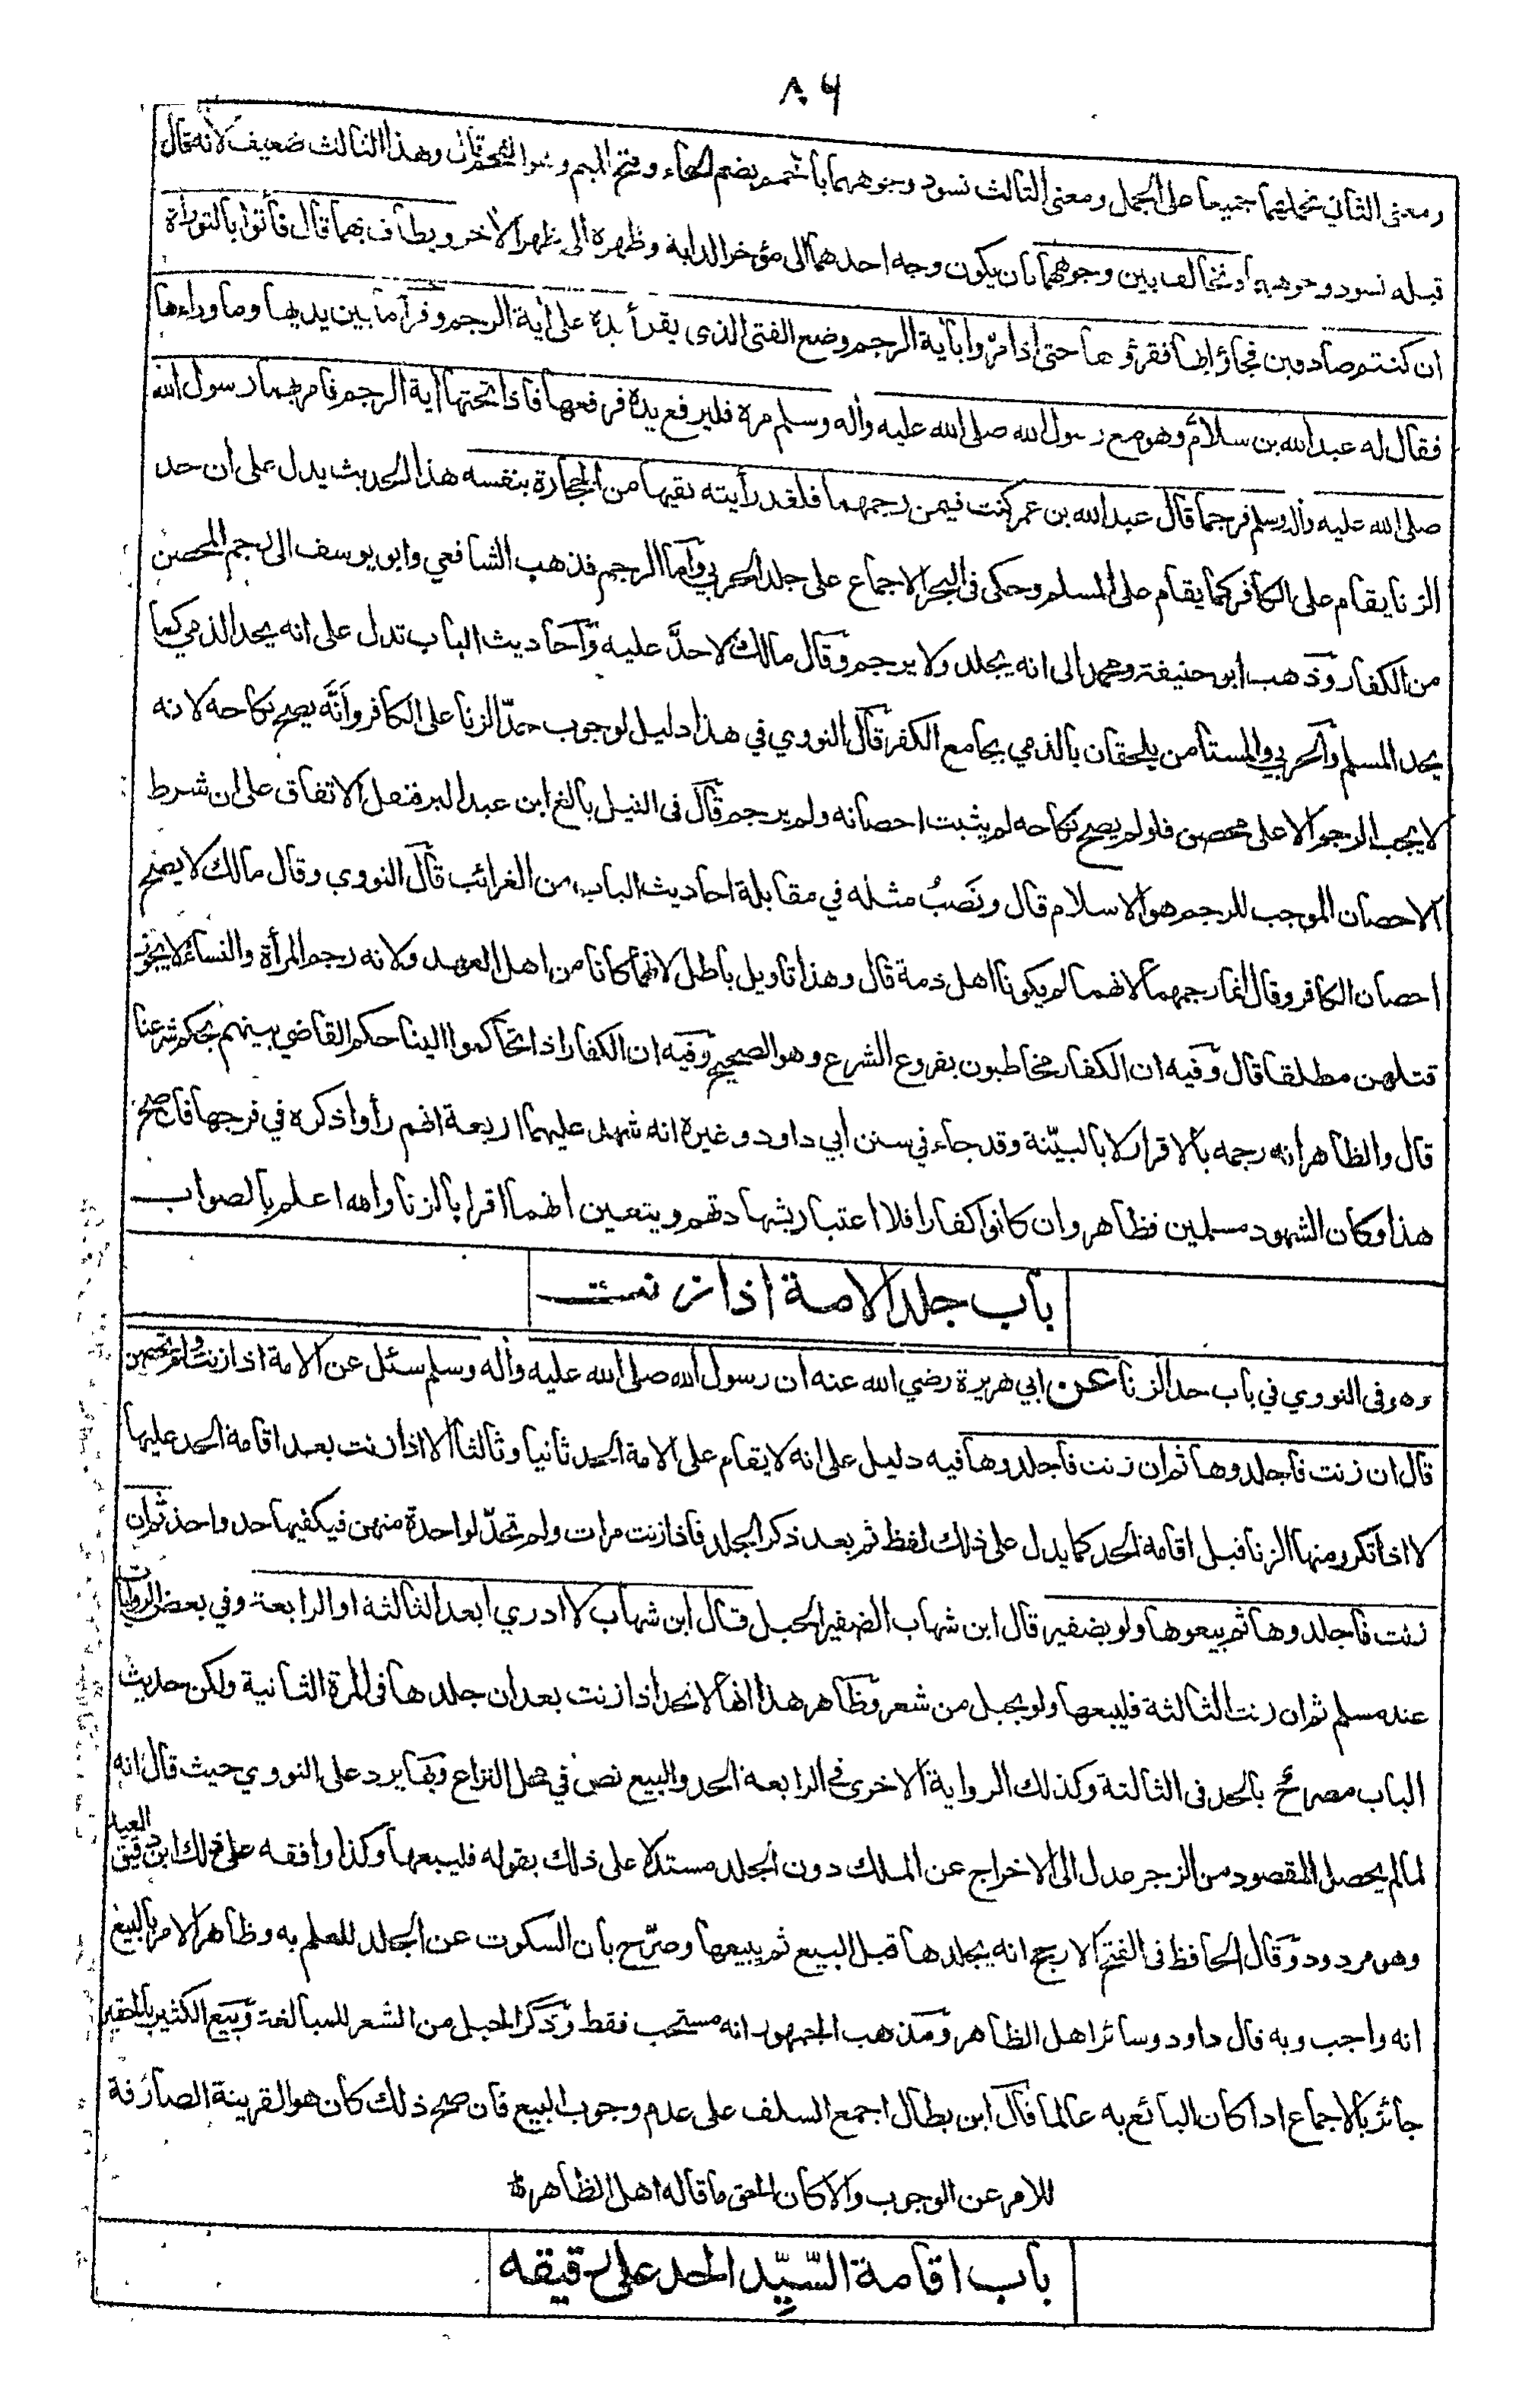 ٨٠٦
ومعنى الثاني نحملهما جميعا على الجمل ومعنى الثالث نسود وجوههما بالحمم بضم الحاء وفتح الميم وهو الفحم قال وهذا الثالث ضعيف لانه قال
قبله نسود وجوههما ونخالف بين وجوههما بان يكون وجه احدهما الى مؤخر الدابة وظهره الى ظهر الاخر ويطاف بهما قال فأتوا بالتوراة
ان كنتم صادقين فجاؤا بها فقرؤها حتى اذا مروا بأية الرجم وضع الفتى الذي يقرأ يده على أية الرجم وقرأ ما بين يديها وما وراءها
فقال له عبد الله بن سلام وهو مع رسول الله صلى الله عليه وأله وسلم مره فليرفع يده فرفعها فاذا تحتها أية الرجم فامر بهما رسول الله
صلى الله عليه وأله وسلم فرجما قال عبد الله بن عمر كنت فيمن رجمهما فلقد رأيته يقيها من الحجارة بنفسه هذا الحديث يدل على ان حد
الزنا يقام على الكافر كما يقام على المسلم وحكى في البحر الاجماع على جلد الحربي وأما الرجم فذهب الشافعي وابو يوسف الى رجم المحصن
من الكفار وذهب ابو حنيفة ومحمد الى انه يجلد ولا يرجم وقال مالك لا حدَّ عليه وأحاديث الباب تدل على انه يحد الذمي كما
يحد المسلم والحربي والمستأمن يلحقان بالذمي بجامع الكفر قال النووي في هذا دليل لوجوب حدّ الزنا على الكافر وأنَّه يصح نكاحه لانه
لا يجب الرجم الا على محصن فلو لم يصح نكاحه لم يثبت احصانه ولم يرجم قال في النيل بالغ ابن عبد البر فنقل الاتفاق على ان شرط
الاحصان الموجب للرجم هو الاسلام قال ونَصبُ مثله في مقابلة احاديث الباب من الغرائب قال النووي وقال مالك لا يصح
احصان الكافر وقال انما رجمهما لانهما لم يكونا اهل ذمة قال وهذا تاويل باطل لانهما كانا من اهل العهد ولانه رجم المرأة والنساء لا يجوز
قتلهن مطلقا قال وفيه ان الكفار مخاطبون بفروع الشرع وهو الصحيح وفيه ان الكفار اذا تحاكموا الينا حكم القاضي بينهم بحكم شرعنا
قال والظاهر انه رجمه بالاقرار لا بالبيّنة وقد جاء في سنن ابي داود وغيره انه شهد عليهما اربعة انهم رأوا ذكره في فرجها فان صح
هذا وكان الشهود مسلمين فظاهر وان كانوا كفارا فلا اعتبار بشهادتهم ويتعين انهما اقرا بالزنا والله اعلم بالصواب
باب جلد الامة اذا زنت
وهو في النووي في باب حد الزنا عن ابي هريرة رضي الله عنه ان رسول الله صلى الله عليه وأله وسلم سئل عن الامة اذا زنت ولم تحصن
قال ان زنت فاجلدوها ثم ان زنت فاجلدوها فيه دليل على انه لا يقام على الامة الحد ثانيا وثالثا الا اذا زنت بعد اقامة الحد عليها
لا اذا تكرر منها الزنا قبل اقامة الحد كما يدل على ذلك لفظ ثم بعد ذكر الجلد فاذا زنت مرات ولم تحدّ لواحدة منهن فيكفيها حد واحد ثم ان
زنت فاجلدوها ثم بيعوها ولو بضفير قال ابن شهاب الضفير الحبل قال ابن شهاب لا ادري ابعد الثالثة او الرابعة وفي بعض الروايات
عند مسلم ثم ان زنت الثالثة فليبعها ولو بحبل من شعر وظاهر هذا انها لا تحد اذا زنت بعد ان جلدها في المرة الثانية ولكن حديث
الباب مصرح بالحد في الثالثة وكذلك الرواية الاخرى في الرابعة الحد والبيع نص في محل النزاع وبها يرد على النووي حيث قال انه
لما لم يحصل المقصود من الزجر عدل الى الاخراج عن الملك دون الجلد مستدلا على ذلك بقوله فليبعها وكذا وافقه على ذلك ابن دقيق العيد
وهو مردود وقال الحافظ في الفتح الارجح انه يجلدها قبل البيع ثم يبيعها وصرّح بان السكوت عن الجلد للعلم به وظاهر الامر بالبيع
انه واجب وبه قال داود وسائر اهل الظاهر ومذهب الجمهور انه مستحب فقط وذكر الحبل من الشعر للمبالغة وبيع الكثير بالحقير
جائز بالاجماع اذا كان البائع به عالما قال ابن بطال اجمع السلف على عدم وجوب البيع فان صح ذلك كان هو القرينة الصارفة
للامر عن الوجوب والا كان الحق ما قاله اهل الظاهر
باب اقامة السّيِّد الحد على رقيقه